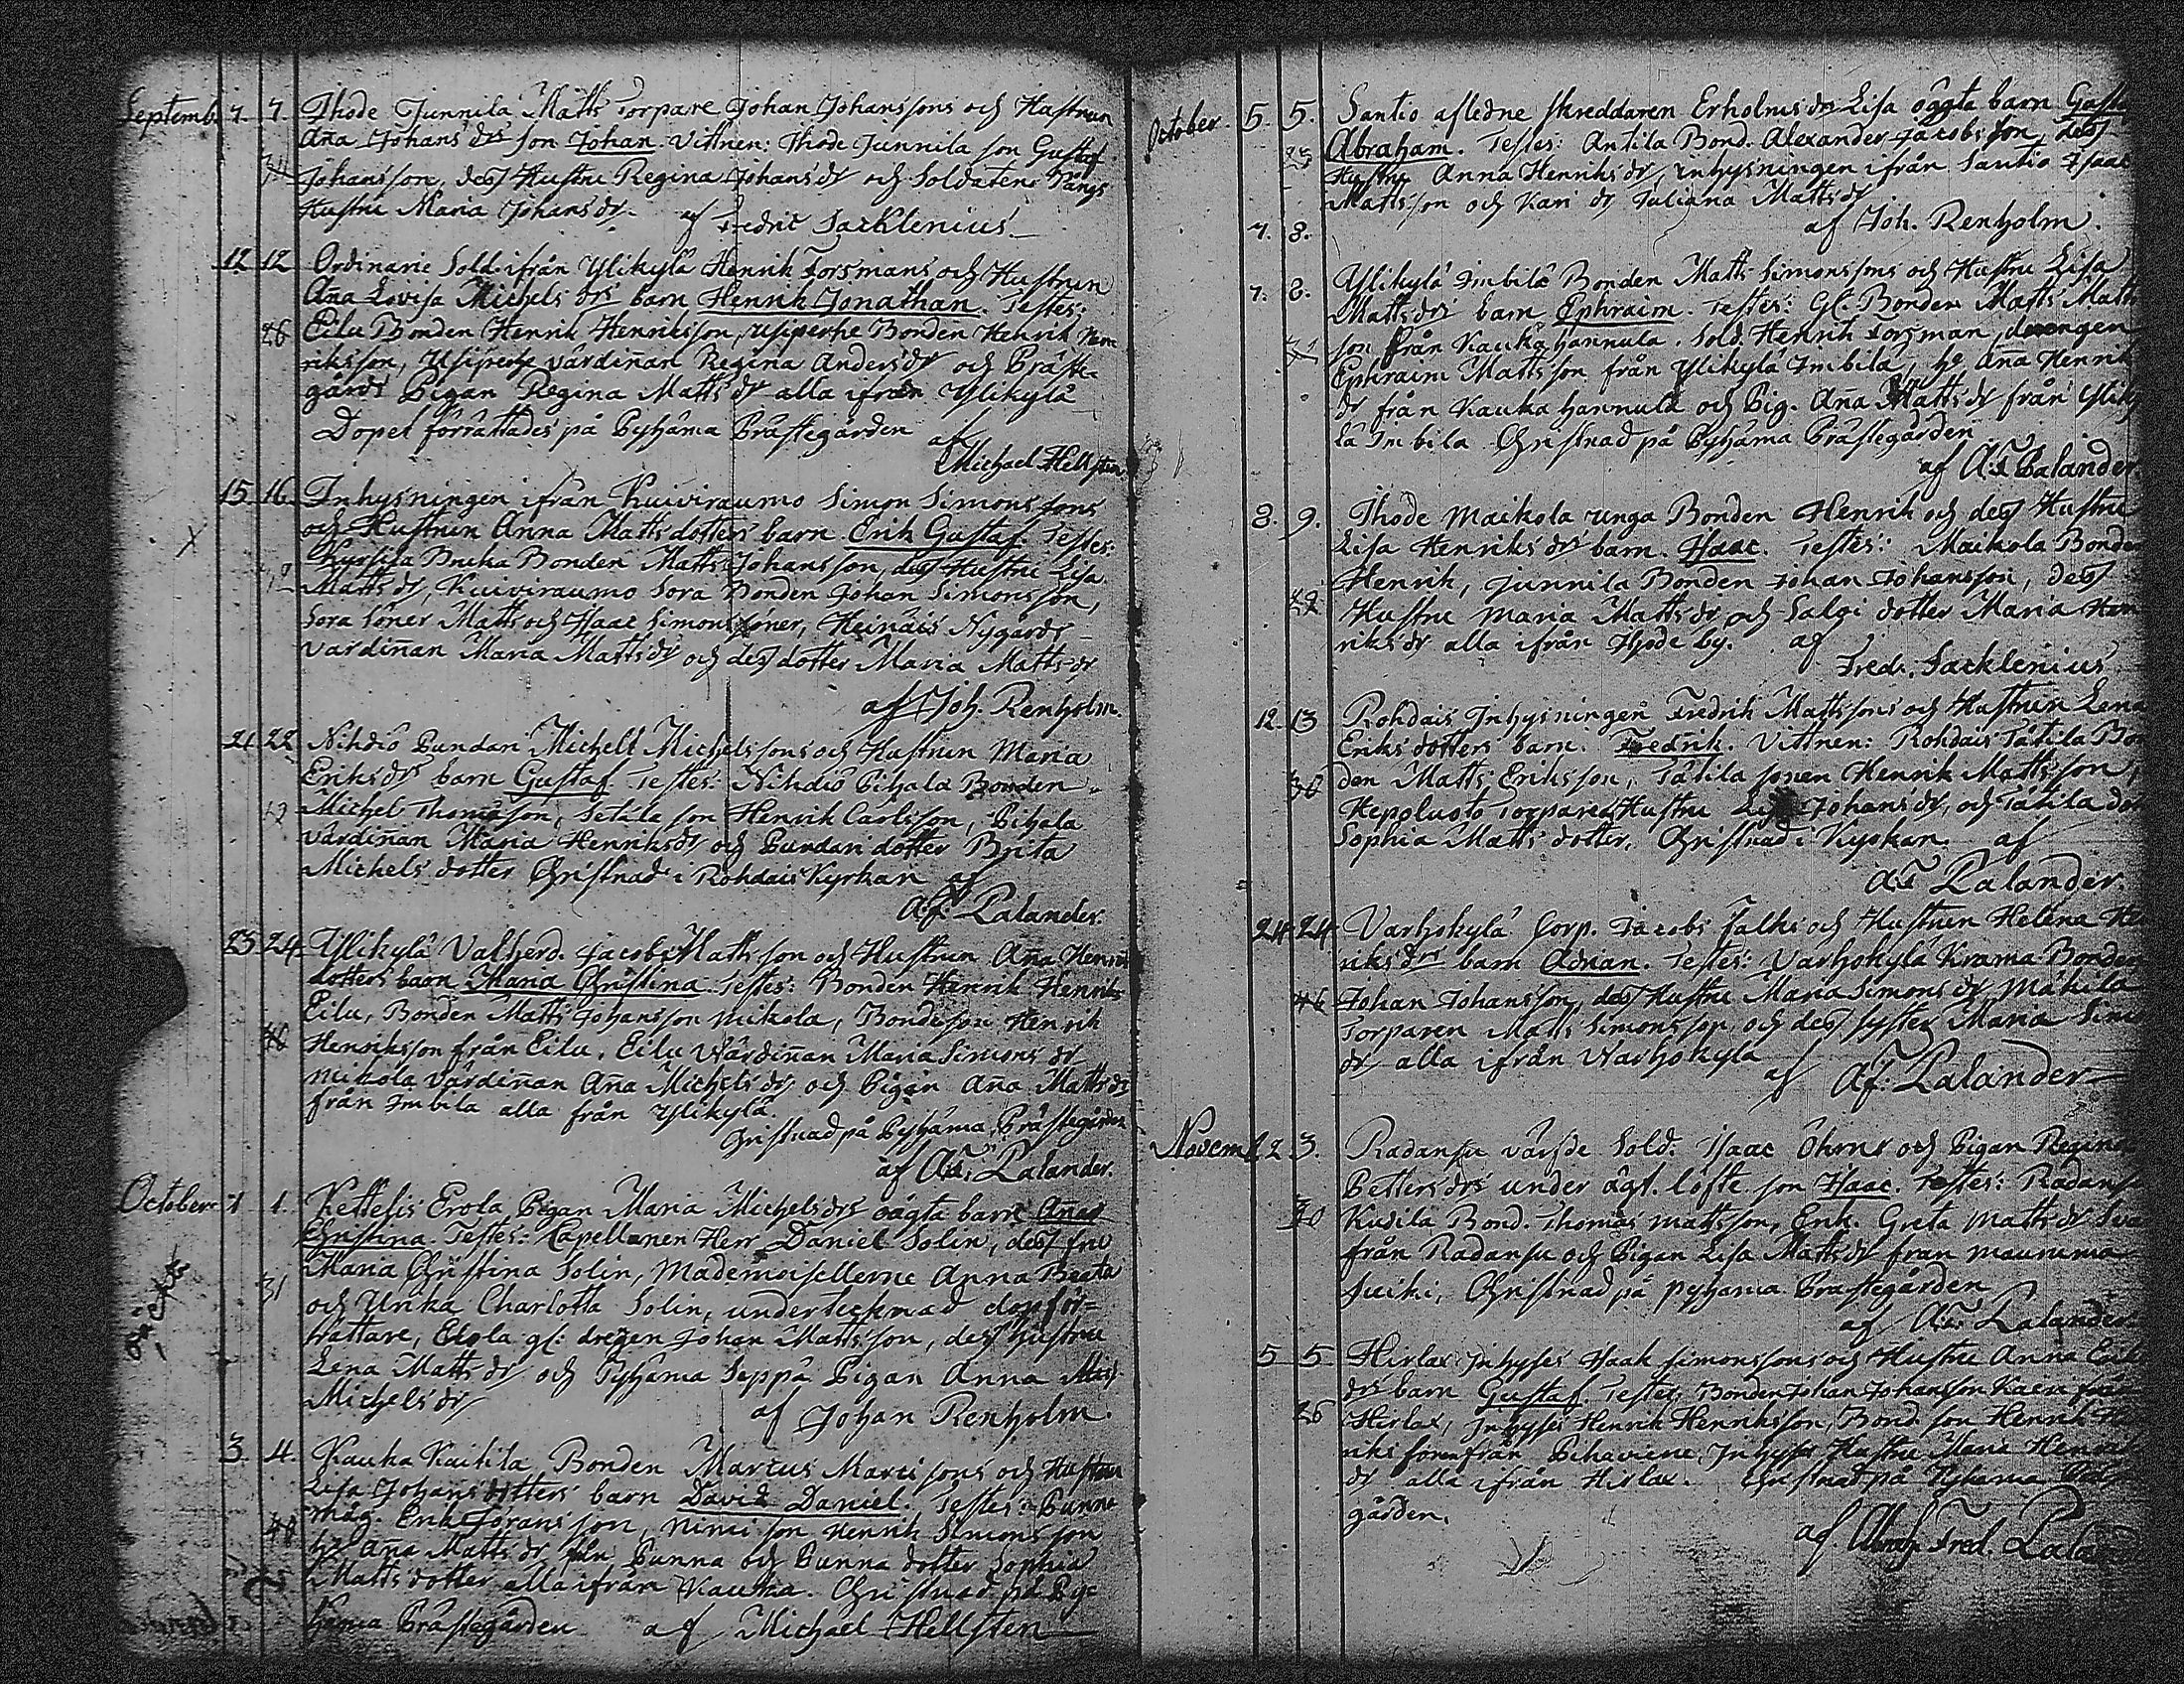 Septemb. 7. 7. Ihode Junnila Matts Torpare Johan Johanssons och Hustrun
Aña Johans drs son Johan. Vittnen: Ihode Junnila son Gustaf
Johansson, dess Hustru Regina Johans dr och Soldatens Tångs
Hustru Maria Johans dr. af Fedric Sacklenius.
12 12 Ordinarie Sold. ifrån Ylikylä Henrik Forsmans och Hustrun
Aña Lovisa Michels drs barn Henrik Jonathan. Testes:
26 Eilu Bonden Henrik Henriksson, Ylipenhe Bonden Henrik Hen
riksson, Ylipenhe värdiñan Regina Anders dr och Präst-
gårds Pigan Regina Matts dr alla ifrån Ylikylä
Dopet förrättades på Pyhäma Prästegården af
Michael Hellsten
15 16 Inhysningen ifrån Kuiviraumo Simon Simons sons
och Hustrun Anna Matts dotters barn Erik Gustaf. Testes:
Bonden Matts Johansson, dess Hustru Lisa
Matts dr, Kuiviraumo Sora Bonden Johan Simonsson,
Sora söner Matts och Isaac Simons söner, Heinäis Nygårds
värdiñan Maria Matts dr och dess dotter Maria Matts dr
af Joh. Renholm.
21 22 Nihdiö Pundari Michell Michelssons och Hustrun Maria
Eriks drs barn Gustaf. Testes: Nihdiö Pihala Bonden
Michel Thomasson, Setäla son Henrik Carlsson, Pihala
värdiñan Maria Henriks dr och Pundari dotter Brita
Michels dotter Christnad i Rohdais Kyrkan af
A.F. Palander.
23 24 Ylikylä Valherd. Jacob Mattsson och Hustrun Aña Henriks
dotters barn Maria Christina. Testes: Bonden Henrik Henriks
Eilu, Bonden Matts Johansson Mikola, Bondeson Henrik
Henriksson från Eilu, Eilu Värdiñan Maria Simons dr
Mikola värdiñan Aña Michels dr och Pigan Aña Matts dr
från Imbila alla från Ylikylä.
Christnad på Pyhäma Prästegården
af A.F. Palander.
October 1 1. Kettelis Erola Pigan Maria Michels drs oägta barn Añas
Christina. Testes: Capellanen Herr Daniel Solin, dess fru
31 Maria Christina Solin, Mademoisellerne Anna Beata
och Ulrika Charlotta Solin, undertecknad dopför-
rättare, Erola gl: drengen Johan Mattsson, dess Hustru
oäckta
Lena Matts dr och Pyhäma Seppä Pigan Anna
Michels dr af Johan Renholm.
3. 4. Kauka Kaukila Bonden Marcus Marci sons och Hustrun
Lisa Johans dotters barn David Daniel. Testes: Punna
måg. Erik Göransson, Nimi son Henrik Simonsson
hu Aña Matts dr från Punna och Punna dotter Sophia
Matts dotter alla ifrån Kauka. Christnad på Py-
häma Prästegården af Michael Hellsten
October. 5. 5. Santio afledne Skreddaren Erholms dr Lisa oägta barn Gusta
Abraham. Testes: Antila Bond. Alexander Jacobsson, dess
Hustru Anna Henriks dr, inhysningen ifrån Santio Isaac
Mattsson och Kari dr Juliana Matts dr
7. 8. af Joh. Renholm.
7. 8. Ylikylä Imbilä Bonden Matts Simonssons och Hustru Lisa
Matts drs barn Ephraim. Testes: Gl. Bonden Matts Matts
son från Kauka hannula. Sold. Henrik Forsman, drengen
Ephraim Mattsson från Ylikylä Imbila, hu Aña Henrik
dr från Kauka hannula och Pig. Aña Matts dr från Yliky
lä Imbila Christnad på Pyhäma Prästegården
af A.F. Palander.
8. 9. Ihode Maikola unga Bonden Henrik och dess Hustru
Lisa Henriks drs barn. Isaac. Testes: Maikola Bonden
Henrik, Junnila Bonden Johan Johansson, dess
Hustru Maria Matts dr och Salvi dotter Maria Hen
riks dr alla ifrån Ihode by. af
Fred. Sacklenius
12. 13 Rohdais Inhysningen Fredrik Mattssons och Hustrun Lena
Eriks dotters barn. Fredrik. Vittnen: Rohdais Tätila Bon
den Matts Eriksson, Tätila sonen Henrik Mattsson,
Hepoluoto Torpares Hustru Johans dr, och Tätila dot
Sophia Matts dotter, Christnad i Kyrkan. af
A.F. Palander.
24. 24. Varhokylä Corp. Jacobs Falks och Hustrun Helena He
riks drs barn Adrian. Testes: Varhokylä Krama Bonden
Johan Johansson, dess Hustru Maria Simons dr Mäkila
Torparen Matts Simonsson och dess syster Maria Simo
dr alla ifrån Varhokylä
af AF: Palander
Novemb. 2. 3. Radansu värfde Sold. Isaac Öhms och Pigan Regina
Petters drs under ägt. löfte son Isaac. Testes: Radansu
Kudila Bond. Thomas Mattsson, Enk. Greta Matts dr
från Radansu och Pigan Lisa Matts dr från
Suiki, Christnad på Pyhäma Prästegården
af A.F. Palander
5 5 Hirlax Inhyses Isaak Simonssons och Hustru Anna Eriks
drs barn Gustaf. Testes: Bonden Johan Johansson från
26 Hirlax, Inhyses Henrik Henriksson, Bond. son Henrik He
riksson från Pihavene, Inhyses Hustru Maria Henrik
dr alla ifrån Hirlax. Christnad på Pyhäma Präs
gården.
af. Abrah. Fred. Palander